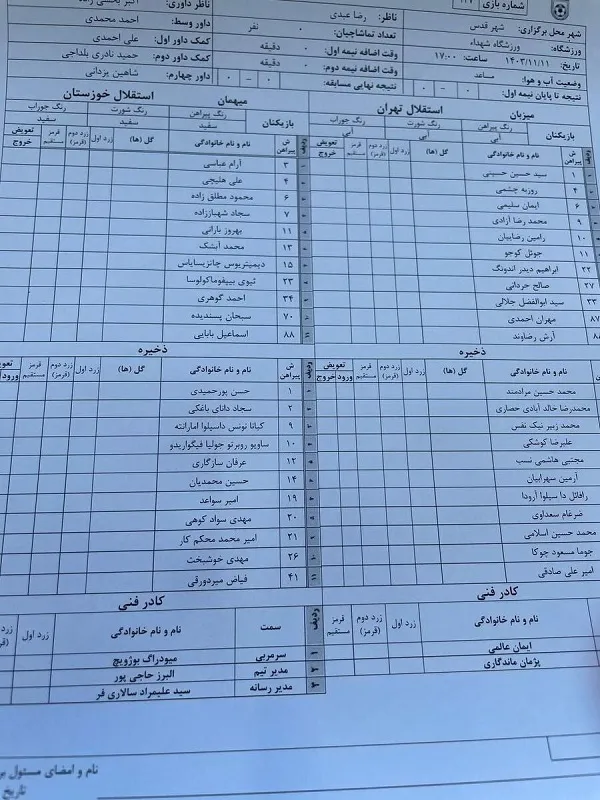 شماره بازی
شهر محل برگزاری: شهر قدس
ورزشگاه: ورزشگاه شهداء
تاریخ: ۱۴۰۳/۱۱/۱۱ ساعت: ۱۷:۰۰
وضعیت آب و هوا: مساعد
نتیجه تا پایان نیمه اول: ۰ - ۰
ناظر: رضا عبدی
تعداد تماشاچیان: ۰ نفر
وقت اضافه نیمه اول: ۰ دقیقه
وقت اضافه نیمه دوم: ۰ دقیقه
نتیجه نهایی مسابقه: ۰ - ۰
ناظر داوری:
داور وسط: احمد محمدی
کمک داور اول: علی احمدی
کمک داور دوم: حمید نادری بلداجی
داور چهارم: شاهین یزدانی
میزبان استقلال تهران
بازیکنان رنگ پیراهن رنگ شورت رنگ جوراب
آبی آبی آبی
ش پیراهن نام و نام خانوادگی گل (ها) زرد اول زرد دوم (قرمز) قرمز مستقیم تعویض خروج
۱ سید حسین حسینی
۴ روزبه چشمی
۶ ایمان سلیمی
۹ محمد رضا آزادی
۱۰ رامین رضاییان
۱۱ جوئل کوجو
۲۲ ابراهیم دیدر اندونگ
۲۷ صالح حردانی
۳۳ سید ابوالفضل جلالی
۸۷ مهران احمدی
آرش رضاوند
ذخیره
نام و نام خانوادگی گل (ها) زرد اول زرد دوم (قرمز) قرمز مستقیم تعویض ورود خروج
محمد حسین مرادمند
محمدرضا خالد آبادی حصاری
محمد زبیر نیک نفس
علیرضا کوشکی
مجتبی هاشمی نسب
آرمین سهرابیان
رافائل دا سیلوا آرودا
ضرغام سعداوی
محمد حسین اسلامی
جوما مسعود چوکا
امیر علی صادقی
کادر فنی
نام و نام خانوادگی زرد اول زرد دوم (قرمز) قرمز مستقیم
ایمان عالمی
پژمان ماندگاری
میهمان استقلال خوزستان
بازیکنان رنگ پیراهن رنگ شورت رنگ جوراب
سفید سفید سفید
ردیف ش پیراهن نام و نام خانوادگی گل (ها) زرد اول زرد دوم (قرمز) قرمز مستقیم تعویض خروج
۳ آرام عباسی
۴ علی هلیچی
۶ محمود مطلق زاده
۷ سجاد شهباززاده
۱۱ بهروز بارانی
۱۳ محمد آبشک
۱۵ دیمیتریوس چانزیسایاس
۲۳ ثیوی بیفوماکولوسا
۳۴ احمد گوهری
۷۰ سبحان پسندیده
۸۸ اسماعیل بابایی
ذخیره
ردیف ش پیراهن نام و نام خانوادگی گل (ها) زرد اول زرد دوم (قرمز) قرمز مستقیم ورود
۱ حسن پورحمیدی
۲ سجاد دانای باغکی
۹ کیانا نونس داسیلوا امارانته
۱۰ ساویو روبرتو جولیا فیگواریدو
۱۲ عرفان سازگاری
۱۴ حسین محمدیان
۱۹ امیر سواعد
۲۰ مهدی سواد کوهی
۲۱ امیر محمد محکم کار
۲۶ مهدی خوشبخت
۴۱ فیاض میردورقی
کادر فنی
ردیف سمت نام و نام خانوادگی زرد اول
۱ سرمربی میودراگ بوژویچ
۲ مدیر تیم البرز حاجی پور
۳ مدیر رسانه سید علیمراد سالاری فر
نام و امضای مسئول
تاریخ